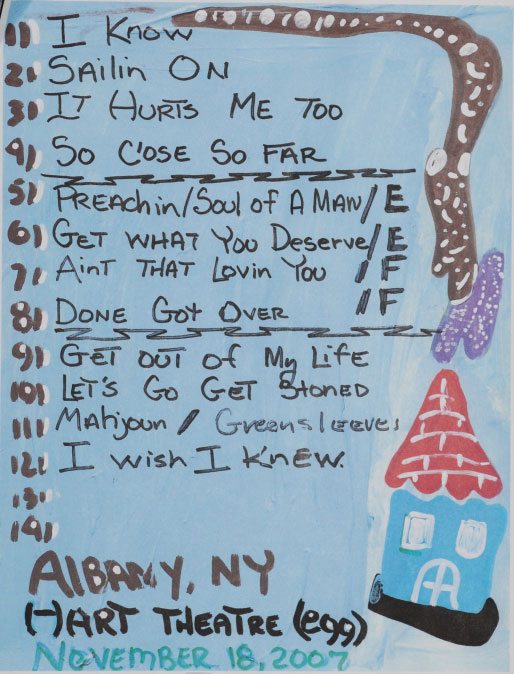 1) I Know
2) Sailin On
3) It Hurts Me Too
4) So C'ose So Far
5) Preachin/Soul of A Man/E
6) Get what You Deserve/E
7) Aint That Lovin You /F
8) Done Got Over /F
9) Get out of My Life
10) Let's Go Get Stoned
11) Mahjoun / Greensleeves
12) I wish I Knew.
13)
14)
Albany, NY
Hart Theatre (egg)
November 18, 2007